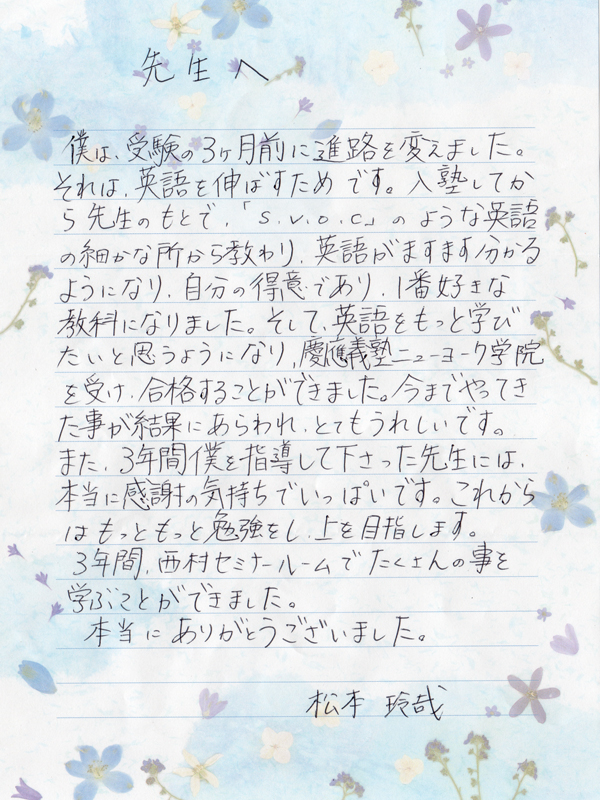 先生へ
僕は、受験の3ヶ月前に進路を変えました。
それは、英語を伸ばすためです。入塾してか
ら先生のもとで、「s.v.o.c」のような英語
の細かな所から教わり、英語がますます分かる
ようになり、自分の得意であり、1番好きな
教科になりました。そして、英語をもっと学び
たいと思うようになり、慶應義塾ニューヨーク学院
を受け、合格することができました。今までやってき
た事が結果にあらわれ、とてもうれしいです。
また、3年間僕を指導して下さった先生には、
本当に感謝の気持ちでいっぱいです。これから
はもっともっと勉強をし、上を目指します。
3年間、西村セミナールームでたくさんの事を
学ぶことができました。
本当にありがとうございました。
松本 玲哉